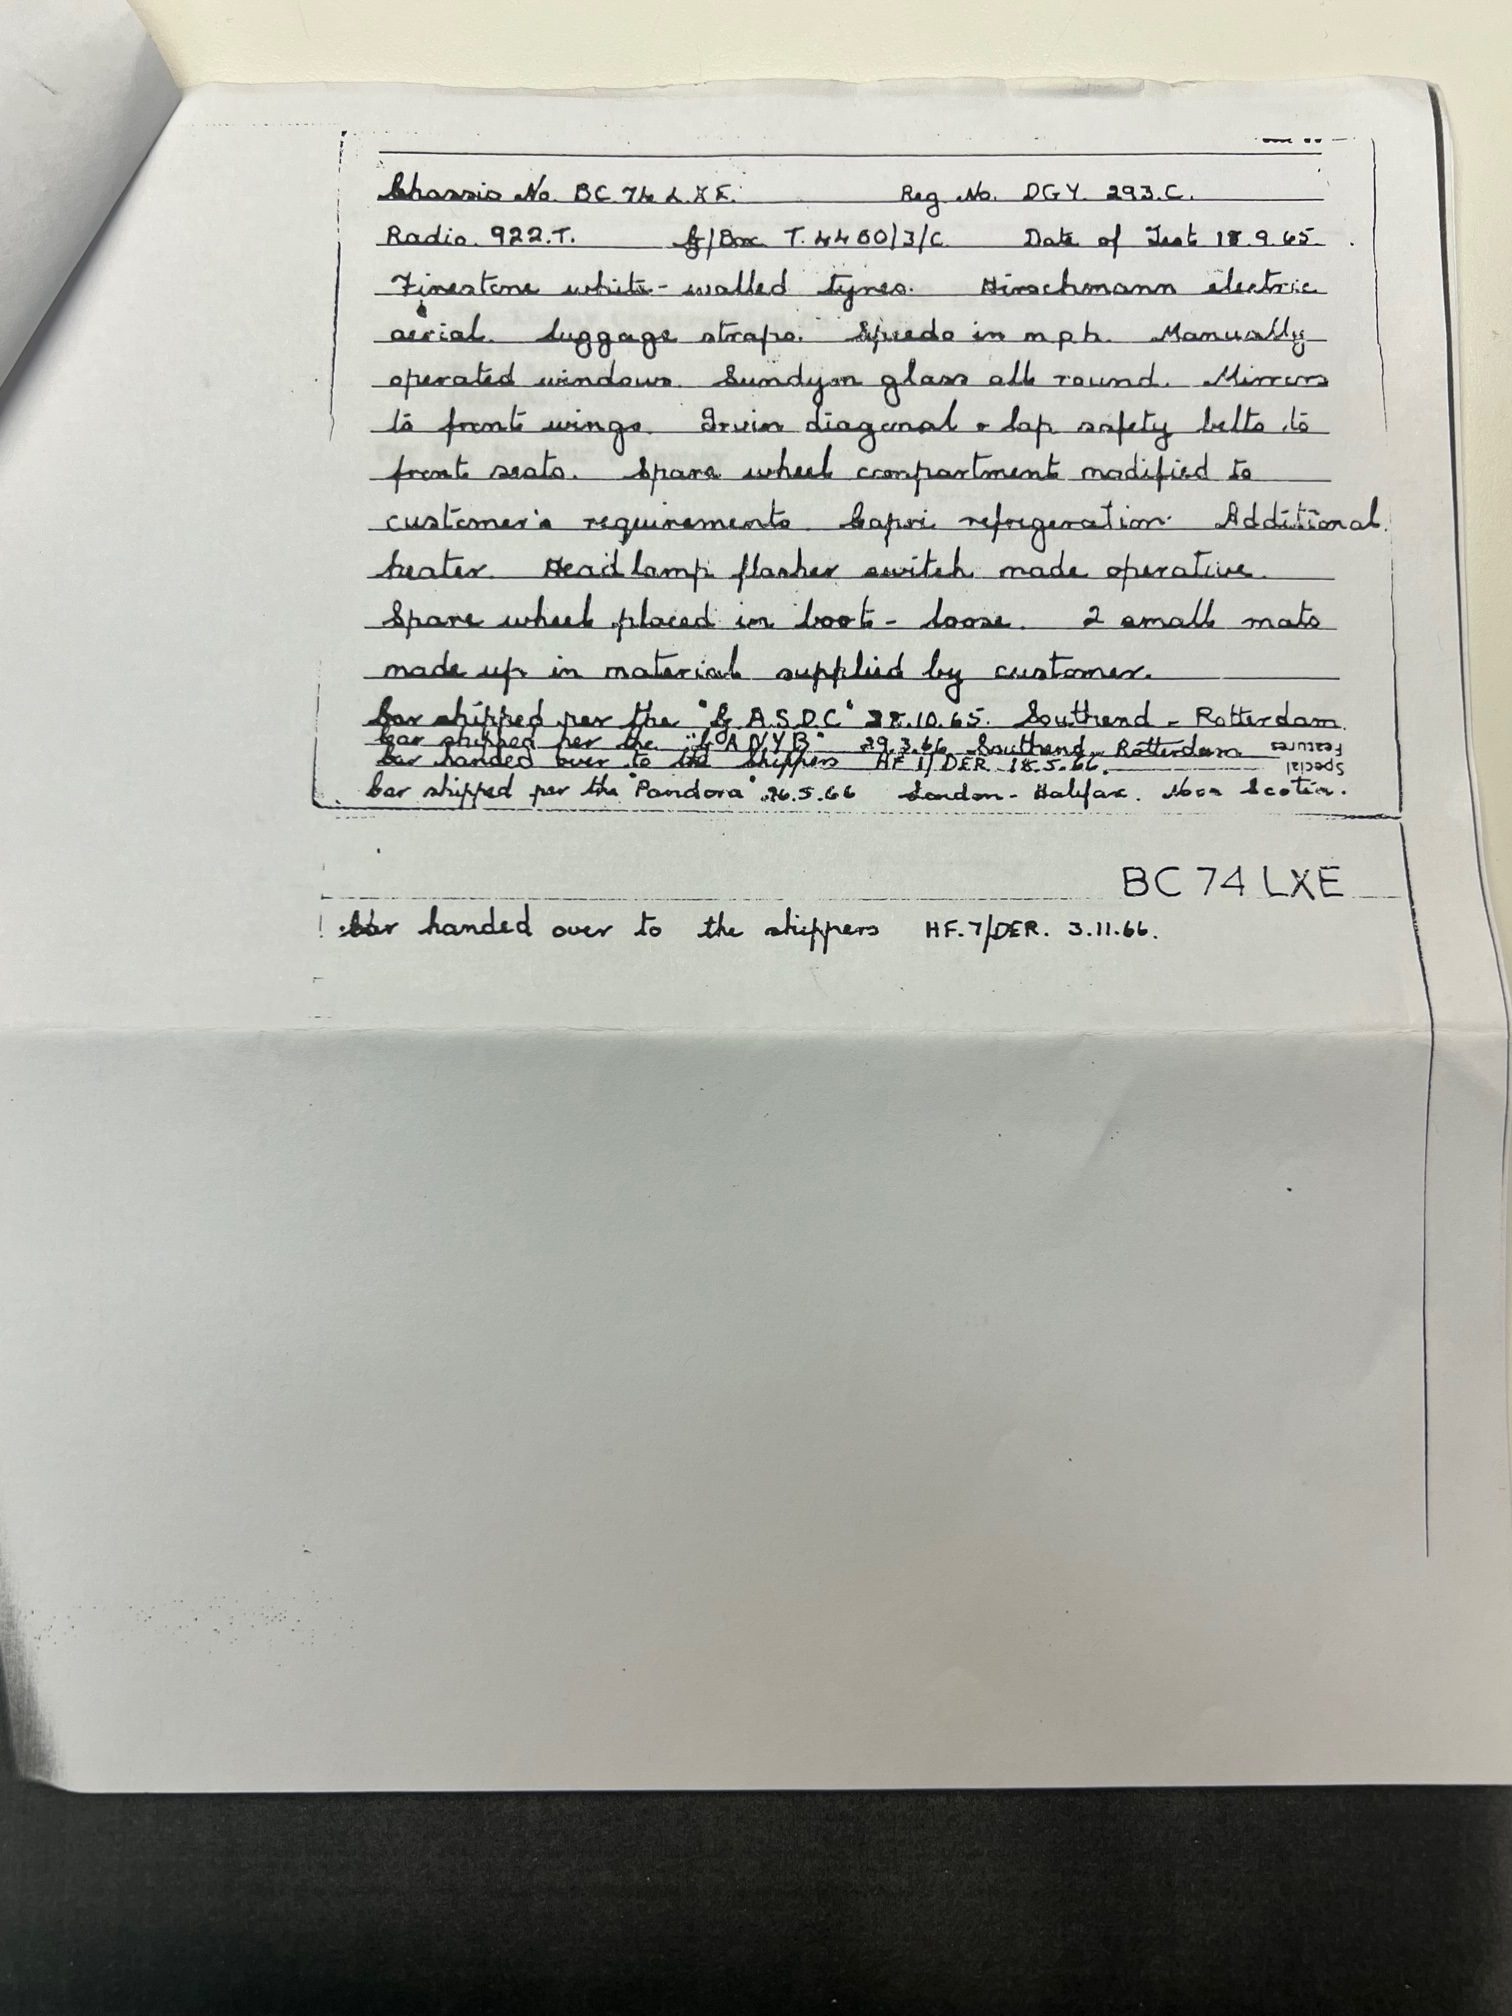 Chassis No. BC.74.L.X.E. Reg. No. DGY. 293.C.
Radio. 922.T. G/Box T.4480/3/C Date of Test 18.9.65.
Firestone white-walled tyres. Hirschmann electric
aerial. Luggage straps. Speedo in m.p.h. Manually
operated windows. Sundym glass all round. Mirrors
to front wings. Irvin diagonal & lap safety belts to
front seats. Spare wheel compartment modified to
customer's requirements. Capri refrigeration. Additional
heater. Headlamp flasher switch made operative.
Spare wheel placed in boot - loose. 2 small mats
made up in material supplied by customer.
Car shipped per the "G.A.S.D.C" 28.10.65. Southend - Rotterdam.
Car shipped per the "G.A.N.Y.B" 29.3.66 Southend - Rotterdam
Car handed over to the shippers HF.1/DER. 18.5.66.
Special Features
Car shipped per the "Pandora" 26.5.66 London - Halifax. Nova Scotia.
BC 74 LXE
Car handed over to the shippers HF.7/DER. 3.11.66.